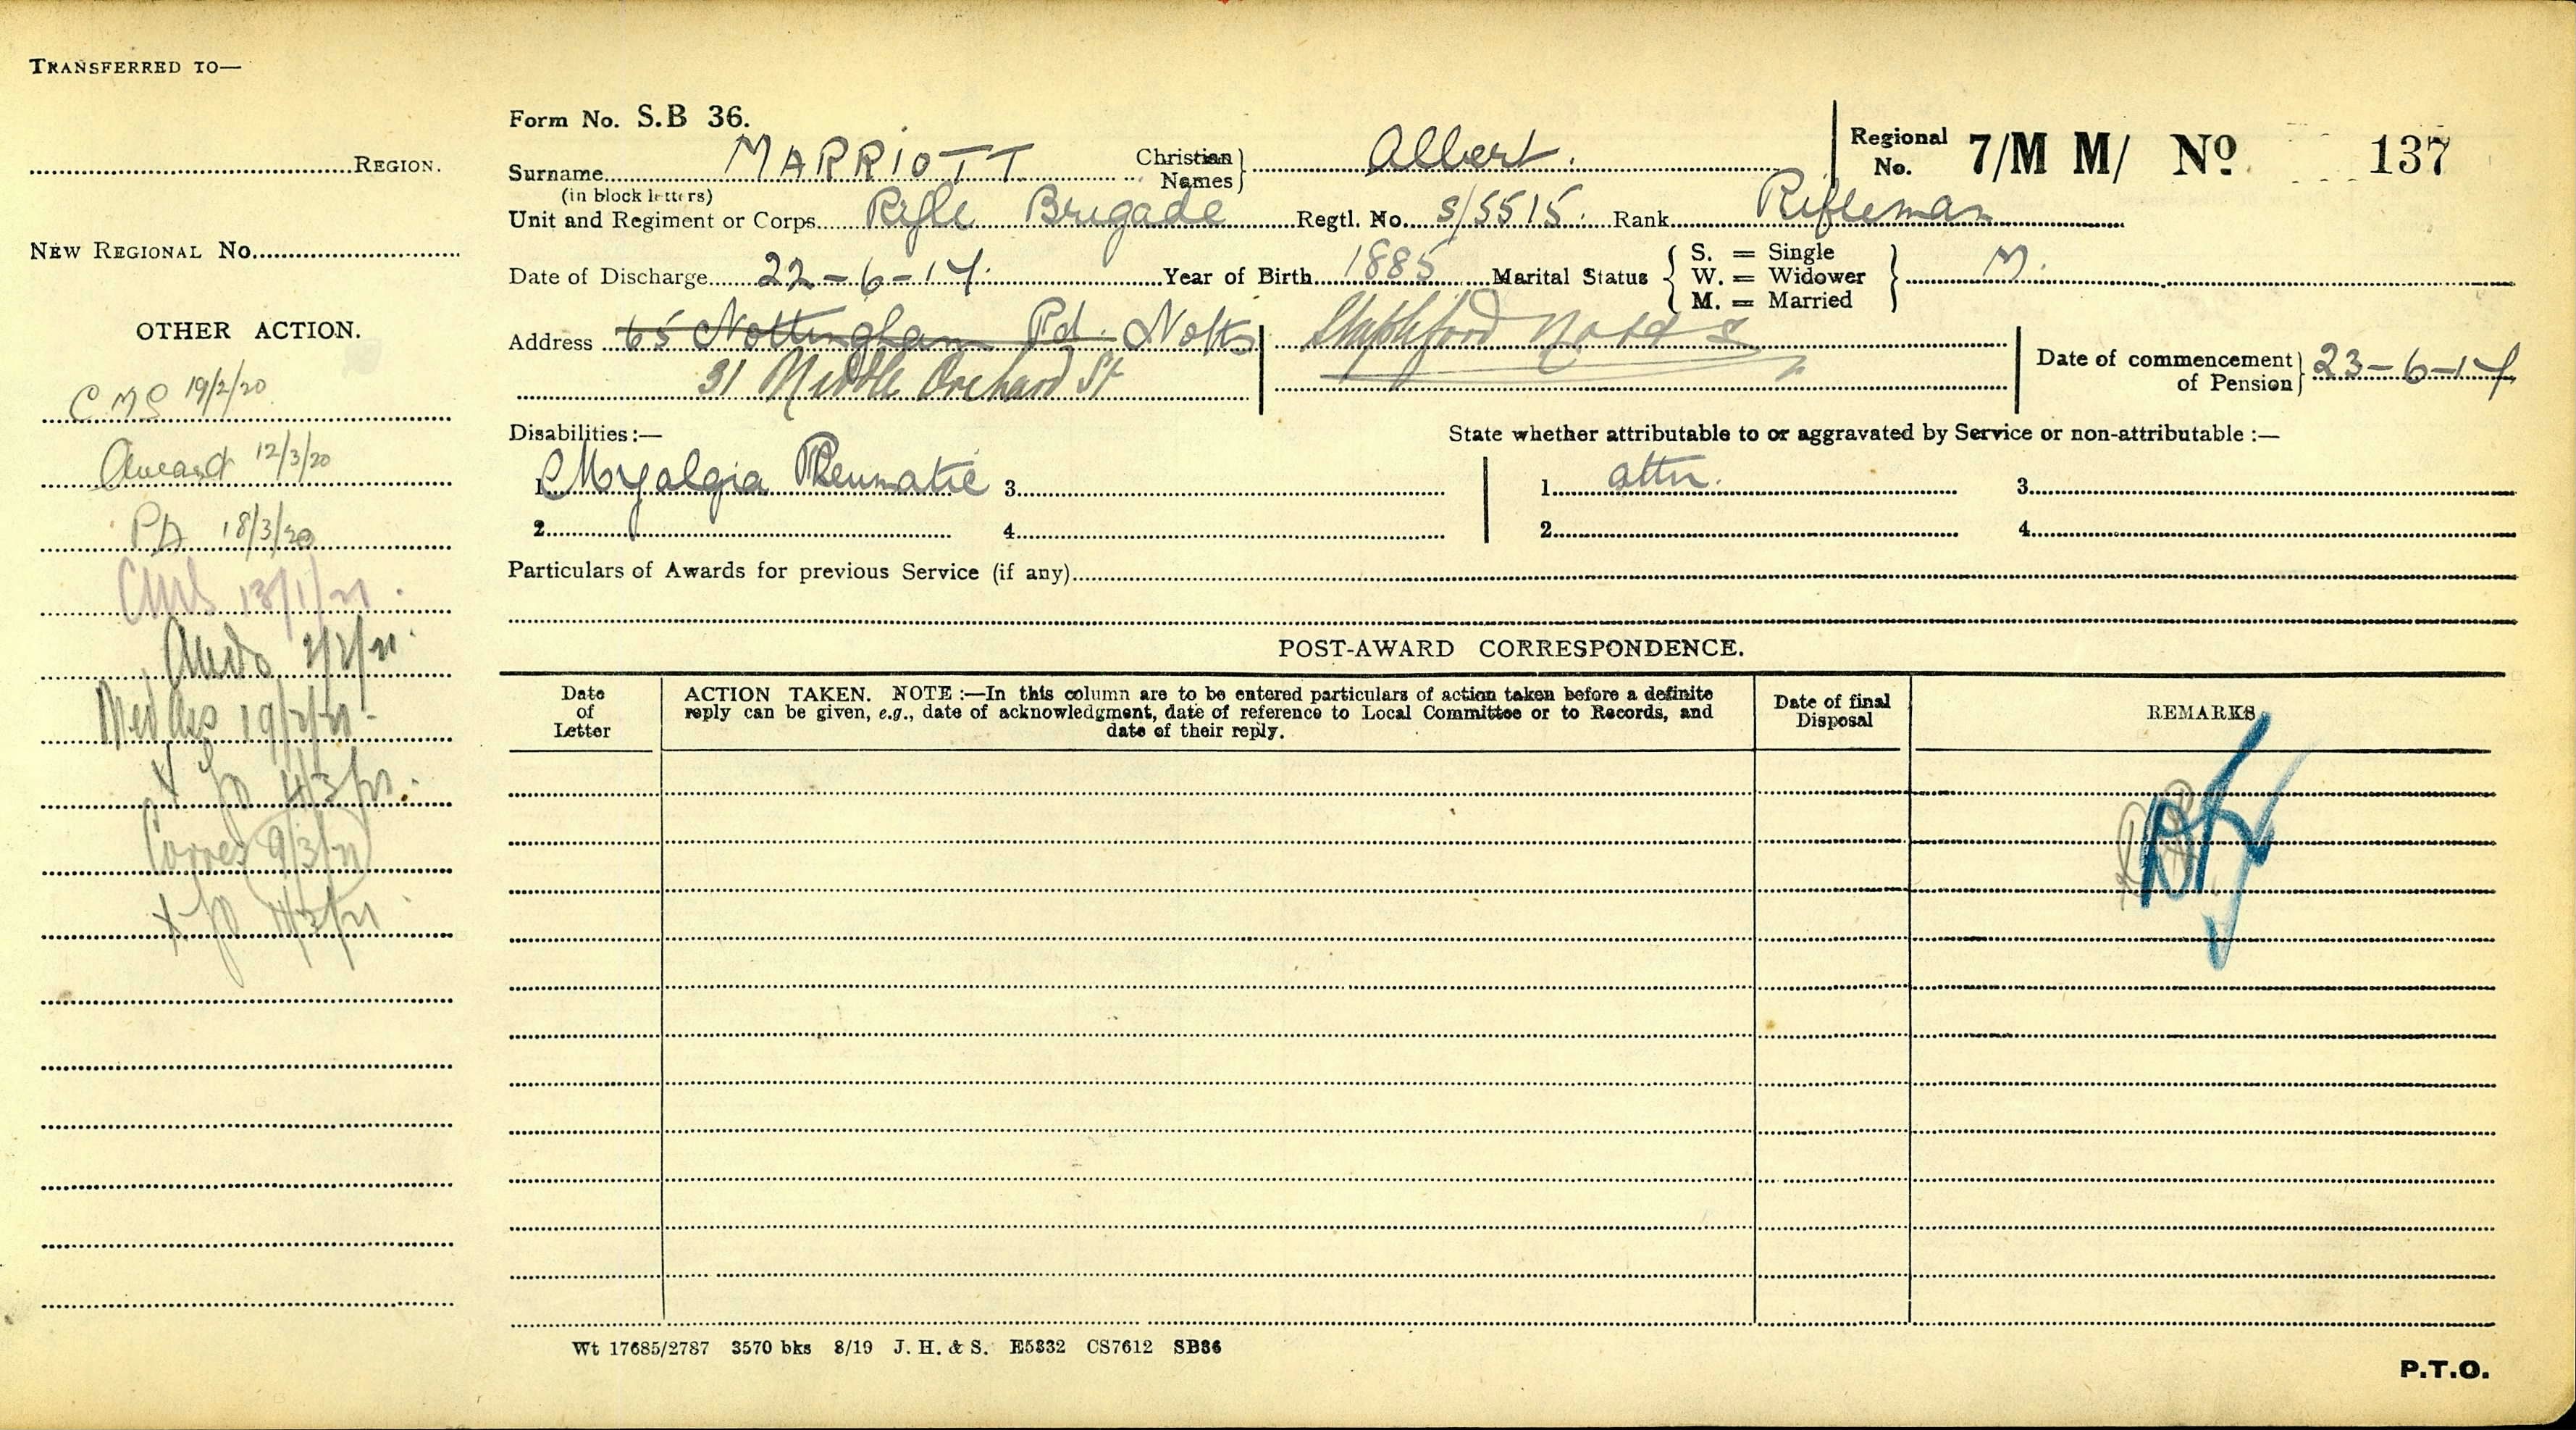 TRANSFERRED TO—
REGION.
NEW REGIONAL NO.
OTHER ACTION.
CMS 19/2/20
Award 12/3/20
PA 18/3/20
CMS 13/1/21
2/2/21
Med 19/2/21
X 4/3/21
Corres 9/3/21
X 11/3/21
Form No. S.B 36.
Surname MARRIOTT Christian Names Albert.
(in block letters)
Regional No. 7/M M/ No 137
Unit and Regiment or Corps Rifle Brigade Regtl. No. S/5515. Rank Rifleman
Date of Discharge 22-6-17. Year of Birth 1885 Marital Status S. = Single W. = Widower M. = Married M.
Address 65 Nottingham Rd. Notts Stapleford Notts
31 Middle Orchard St
Date of commencement of Pension 23-6-17
Disabilities:— State whether attributable to or aggravated by Service or non-attributable:—
1. Myalgia Rheumatic 3. 1. attr. 3.
2. 4. 2. 4.
Particulars of Awards for previous Service (if any)
POST-AWARD CORRESPONDENCE.
Date of Letter
ACTION TAKEN. NOTE:—In this column are to be entered particulars of action taken before a definite
reply can be given, e.g., date of acknowledgment, date of reference to Local Committee or to Records, and
date of their reply.
Date of final Disposal
REMARKS
Wt 17685/2787 3570 bks 8/19 J. H. & S. E5332 CS7612 SB36
P.T.O.